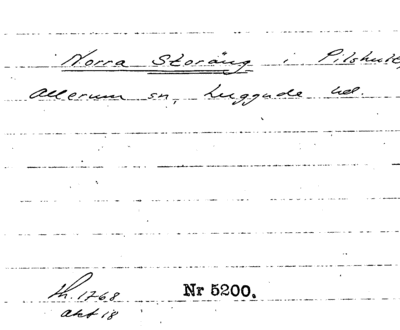 Norra Storäng i Pilshult,
Allerum sn, Luggude hd.
Lh. 1768
akt 18
Nr 5200.